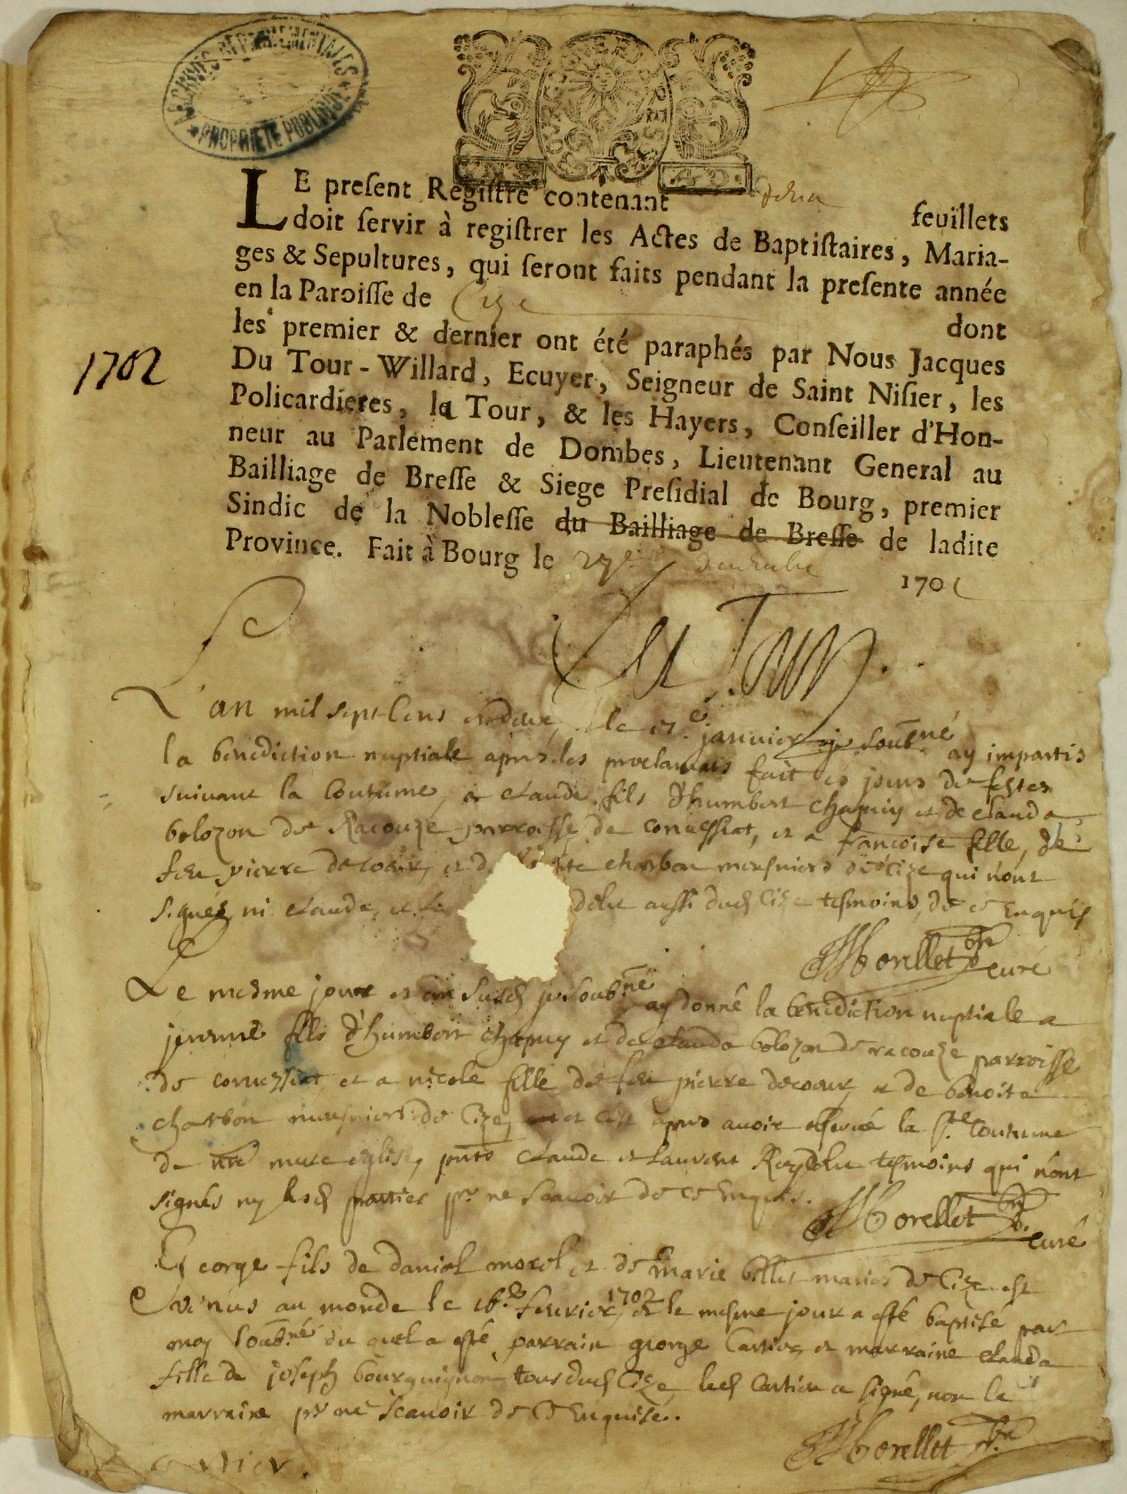 ARCHIVES DEPARTEMENTALES
PROPRIETE PUBLIQUE
LE preſent Regiſtre contenant deux feuillets
doit ſervir à regiſtrer les Actes de Baptiſtaires, Maria-
ges & Sepultures, qui ſeront faits pendant la preſente année
en la Paroiſſe de Cize dont
les premier & dernier ont été paraphés par Nous Jacques
1702
Du Tour-Willard, Ecuyer, Seigneur de Saint Niſier, les
Policardieres, la Tour, & les Hayers, Conſeiller d'Hon-
neur au Parlement de Dombes, Lieutenant General au
Bailliage de Breſſe & Siege Preſidial de Bourg, premier
Sindic de la Nobleſſe du Bailliage de Breſſe de ladite
Province. Fait à Bourg le 27e decembre 170
L'an mil sept Cens et deux, le 17e janvier je soubné ay impartis
la benediction nuptiale apres les proclamats fait es jours de festes
suivant la Coutume, a Claude fils d'humbert chapuy et de Clauda
bolozon de Racouze parroisse de corvessiat, et a francoise fille de
feu pierre decoeur, et de charbon meusniers de Cize qui n'ont
signés ni Claude, et aussi dud Cize tesmoins, de ce Enquis
Morellet pbr curé
Le mesme jour et an susd je soubné ay donné la benediction nuptiale a
fils d'humbert chapuy et de clauda bolozon de racouze parroisse
de corvessiat et a nicole fille de feu pierre decoeur et de benoite
charbon meusniers de Cize, et ce apres avoir observé la ste Coutume
de nre mere eglise, pnts Claude et Laurent tesmoins qui n'ont
signés ny lesd parties pr ne scavoir de ce Enquis.
Morellet pbr. curé
George fils de daniel morel et de marie mariés de Cize est
venus au monde le 16e fevrier 1702 et le mesme jour a esté baptisé par
moy soubné du quel a esté parrain george Cartier et marraine clauda
fille de joseph bourguignon tous dud Cize led Cartier a signé, non la
marraine pr ne scavoir de ce Enquise.
Morellet pbr
cartier.